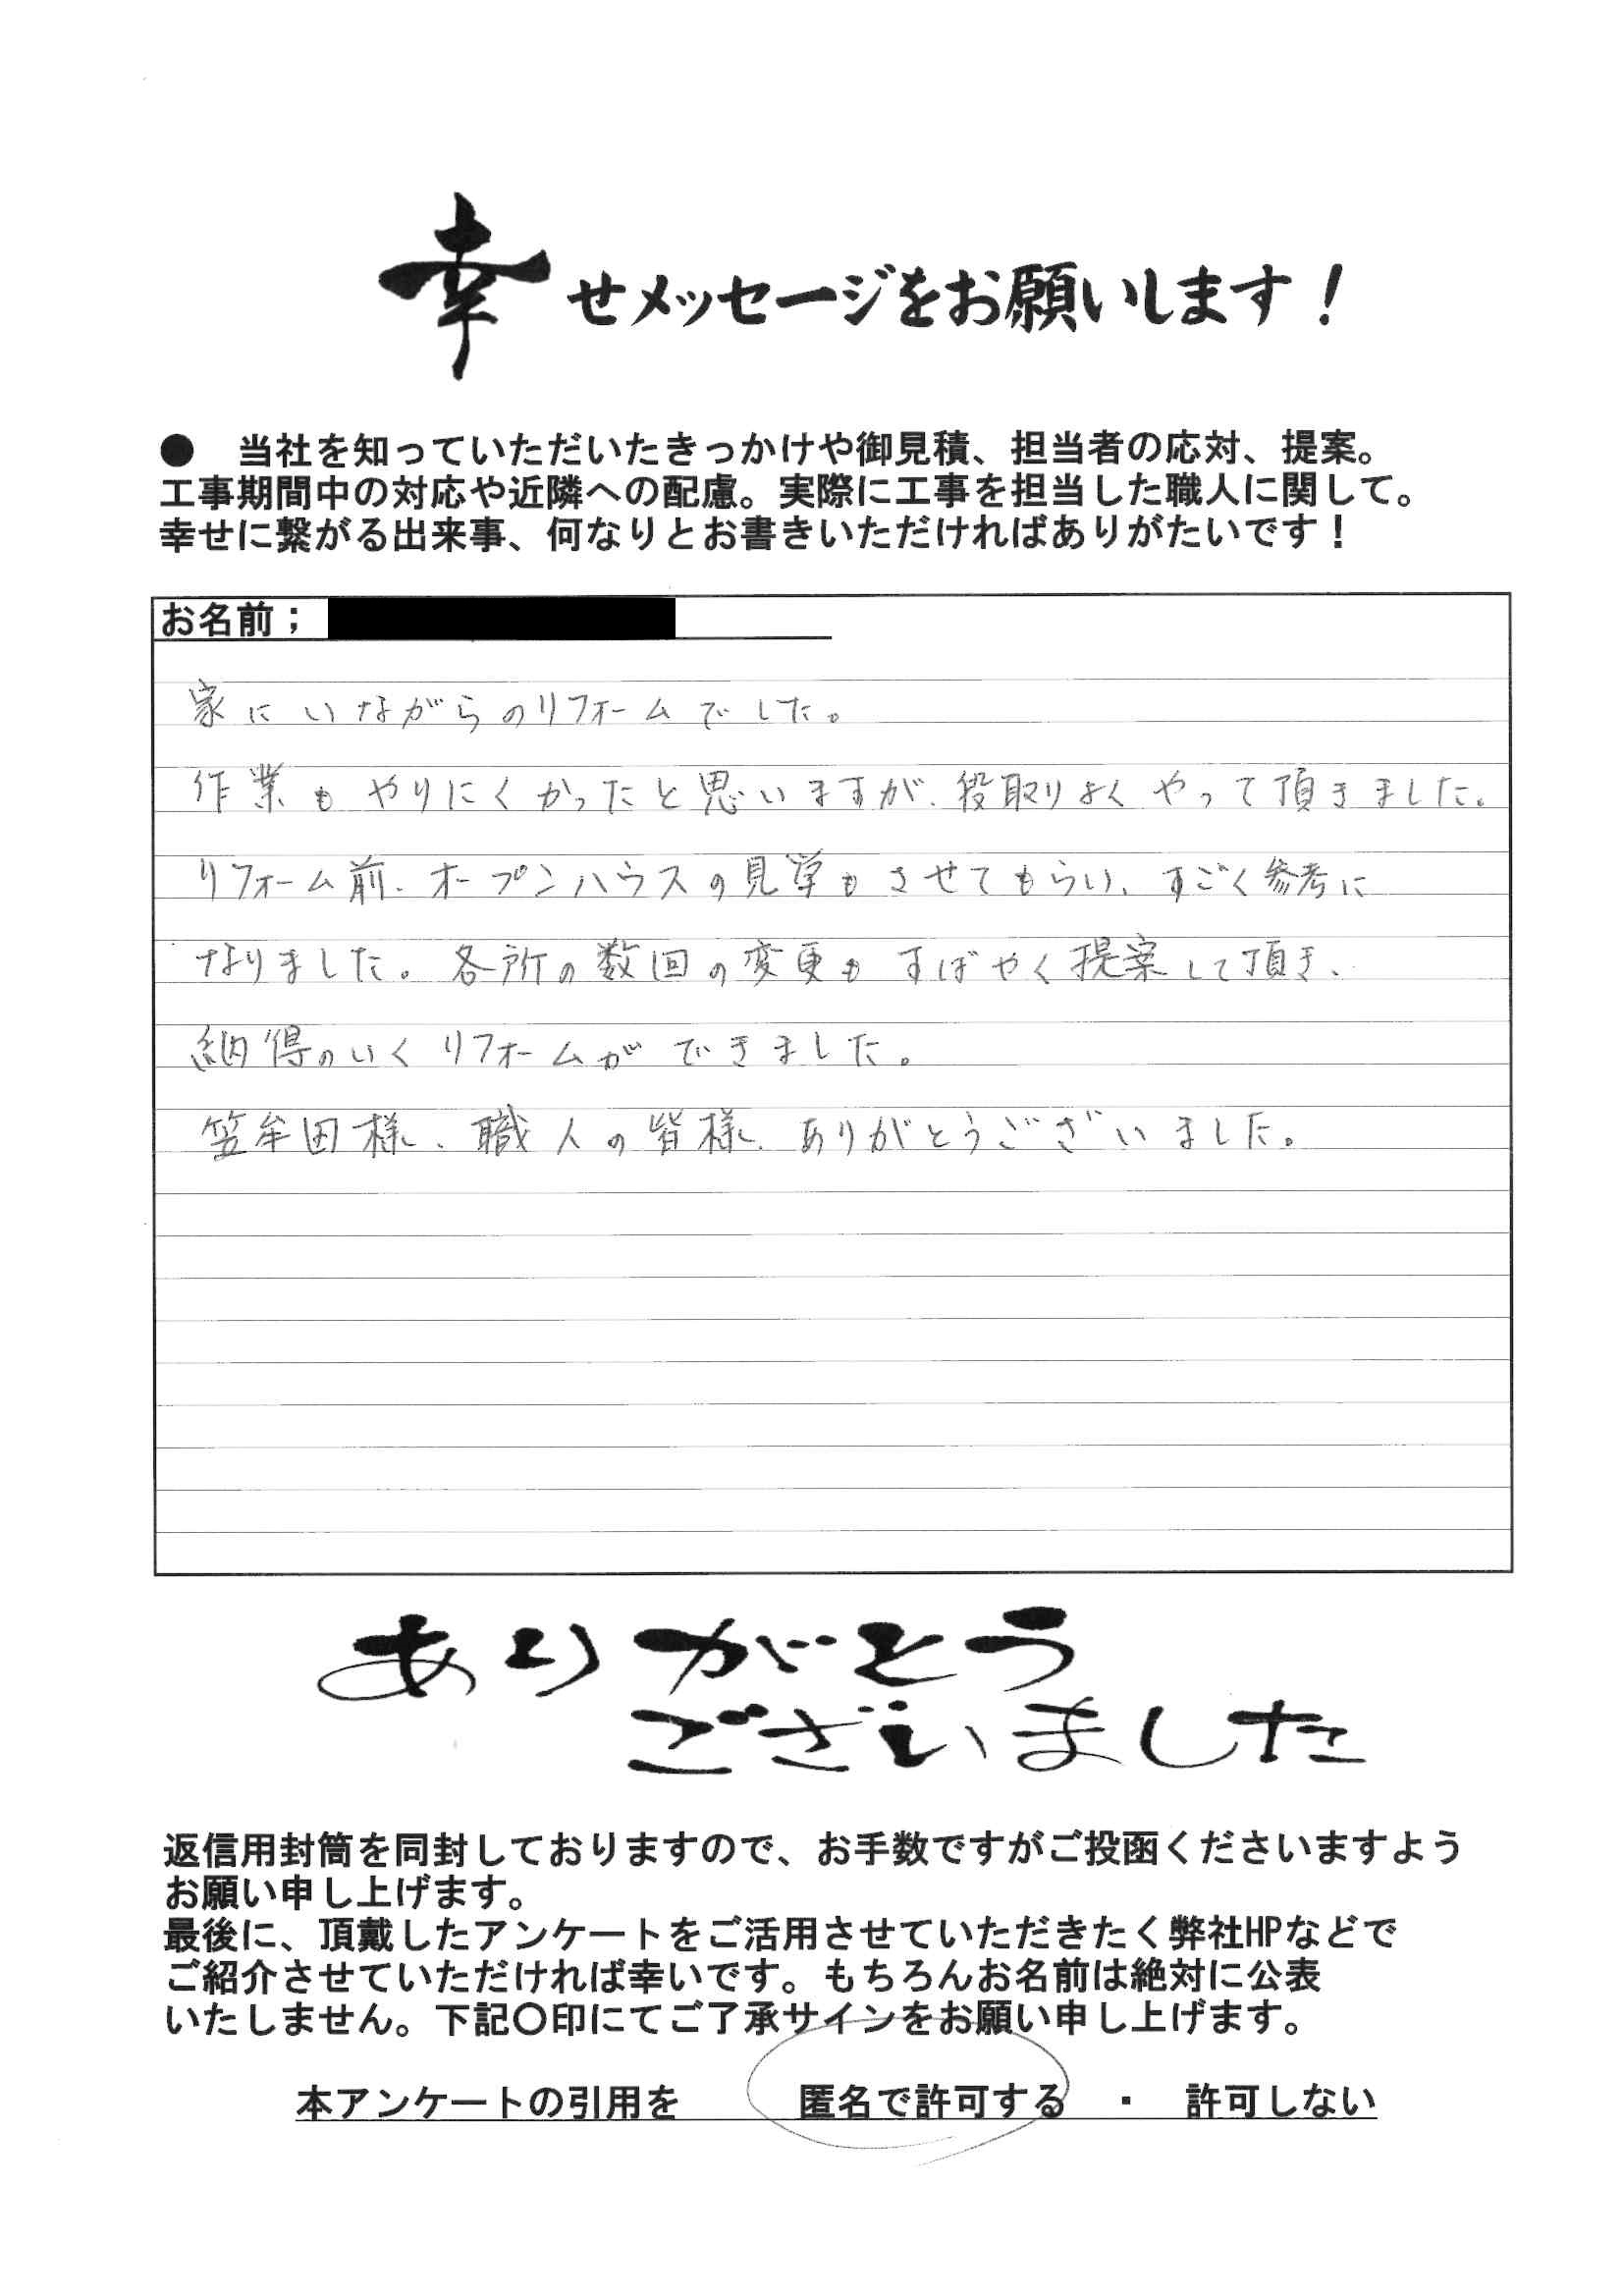 幸せメッセージをお願いします！
●　当社を知っていただいたきっかけや御見積、担当者の応対、提案。
工事期間中の対応や近隣への配慮。実際に工事を担当した職人に関して。
幸せに繋がる出来事、何なりとお書きいただければありがたいです！
お名前；
家にいながらのリフォームでした。
作業もやりにくかったと思いますが、役取りよくやって頂きました。
リフォーム前、オープンハウスの見学もさせてもらい、すごく参考に
なりました。各所の数回の変更もすばやく提案して頂き、
納得のいくリフォームができました。
笠牟田様、職人の皆様、ありがとうございました。
ありがとう
ございました
返信用封筒を同封しておりますので、お手数ですがご投函くださいますよう
お願い申し上げます。
最後に、頂戴したアンケートをご活用させていただきたく弊社HPなどで
ご紹介させていただければ幸いです。もちろんお名前は絶対に公表
いたしません。下記〇印にてご了承サインをお願い申し上げます。
本アンケートの引用を　匿名で許可する　・　許可しない